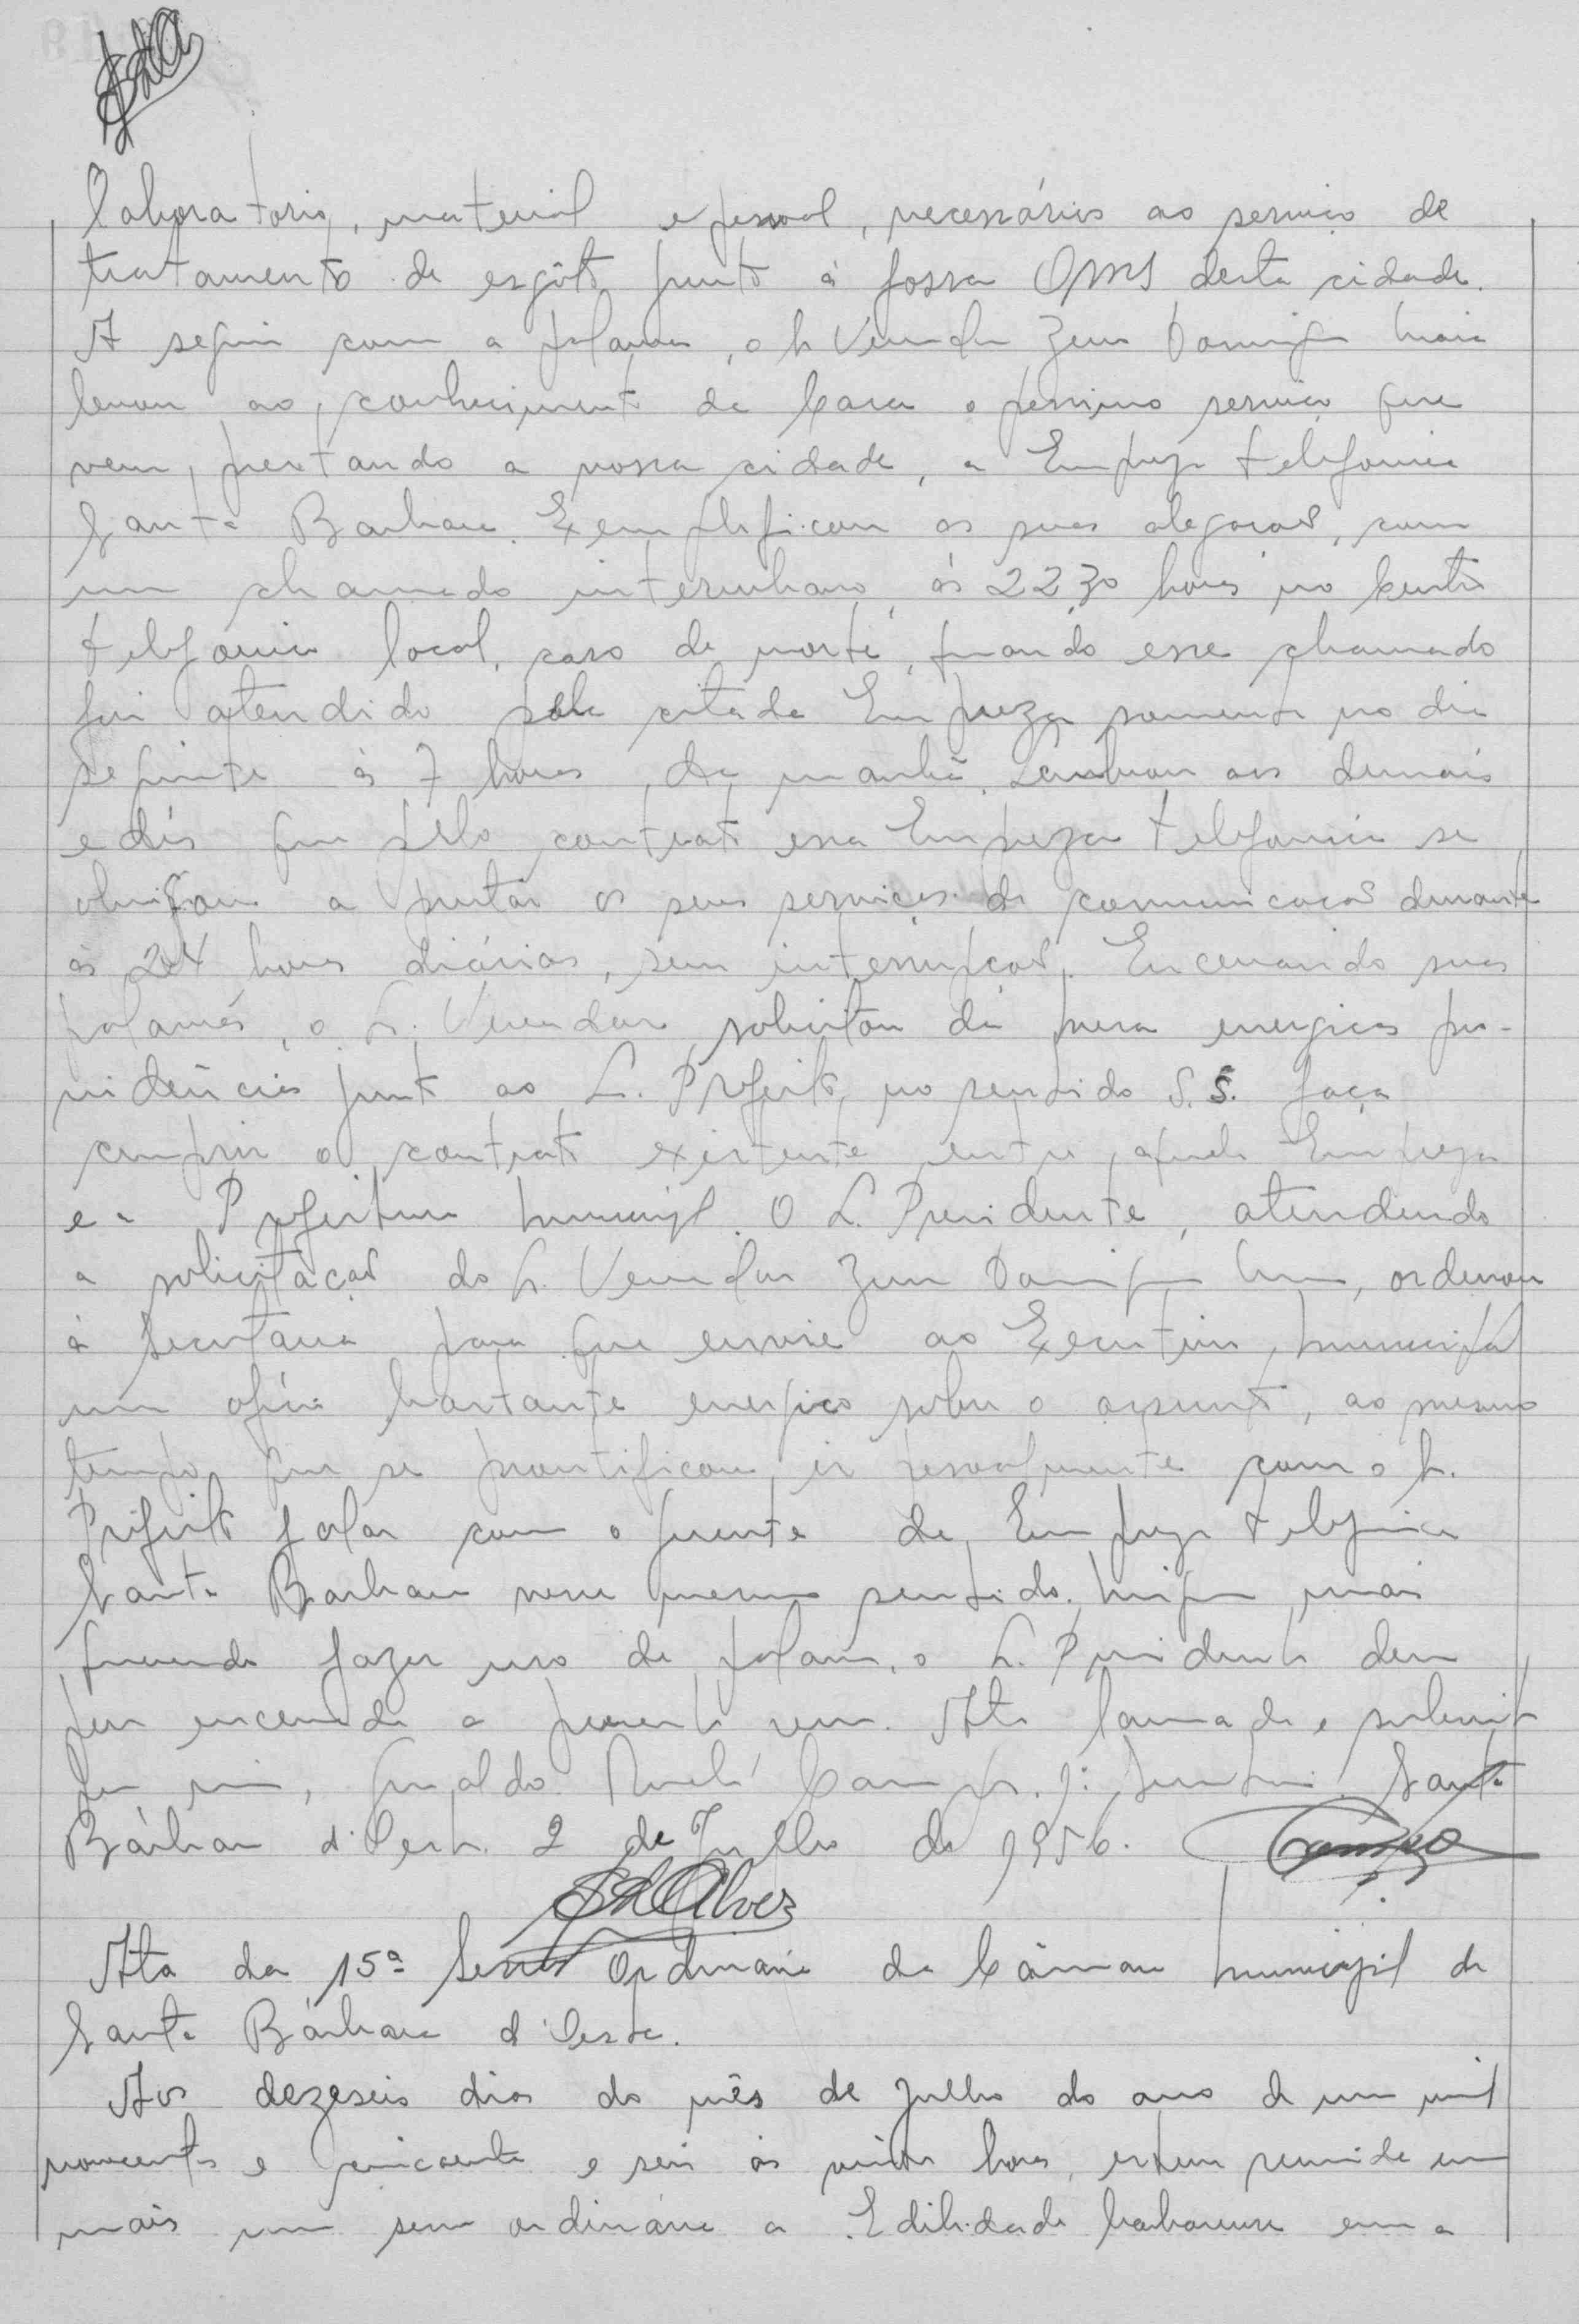 laboratorio, material e pessoal, necessários ao serviço de
tratamento de esgôto junto à fossa OMS desta cidade.
A seguir com a palavra, o Sr Vereador Zeno Domingos Maia
levou ao conhecimento da Casa o pessimo serviço que
vem prestando a nossa cidade, a Empreza telefonica
Santa Barbara. Exemplificou as suas alegações, com
um chamado interurbano, ás 22 30 horas no Centro
telefonico local, caso de morte, quando esse chamado
foi atendido pela citada Empreza somente no dia
seguinte ás 7 horas da manhã. Lembrou aos demais
edis que pelo contrato essa Empreza telefonica se
obrigou a prestar os seus serviços de comunicação durante
ás 24 horas diárias, sem interrupção. Encerrando suas
palavras, o Sr. Vereador solicitou da mesa energicas pro-
vidências junto ao Sr. Prefeito, no sentido S.S. faça
cumprir o contrato existente entre aquela Empreza
e a Prefeitura Municipal. O Sr. Presidente, atendendo
a solicitação do Sr. Vereador Zeno Domingos Maia, ordenou
à Secretaria para que envie ao Executivo Municipal
um ofício bastante energico sobre o assunto, ao mesmo
tempo que se prontificou ir pessoalmente com o Sr.
Prefeito falar com o gerente da Empreza telefonica
Santa Barbara nesse mesmo sentido. Ninguem mais
querendo fazer uso da palavra, o Sr. Presidente deu
por encerrada a presente sessão. Ata lavrada e subscrita
por mim, Campos, 1º Secretario. Santa
Bárbara d'Oeste 2 de Julho de 1956. Campos
Alves
Ata da 15ª Sessão Ordinaria da Câmara Municipal de
Santa Bárbara d'Oeste.
Aos dezeseis dias do mês de Julho do ano de um mil
novecentos e cincoenta e seis ás vinte horas, esteve reunida em
mais uma sessão ordinária a Edilidade barbarense em a